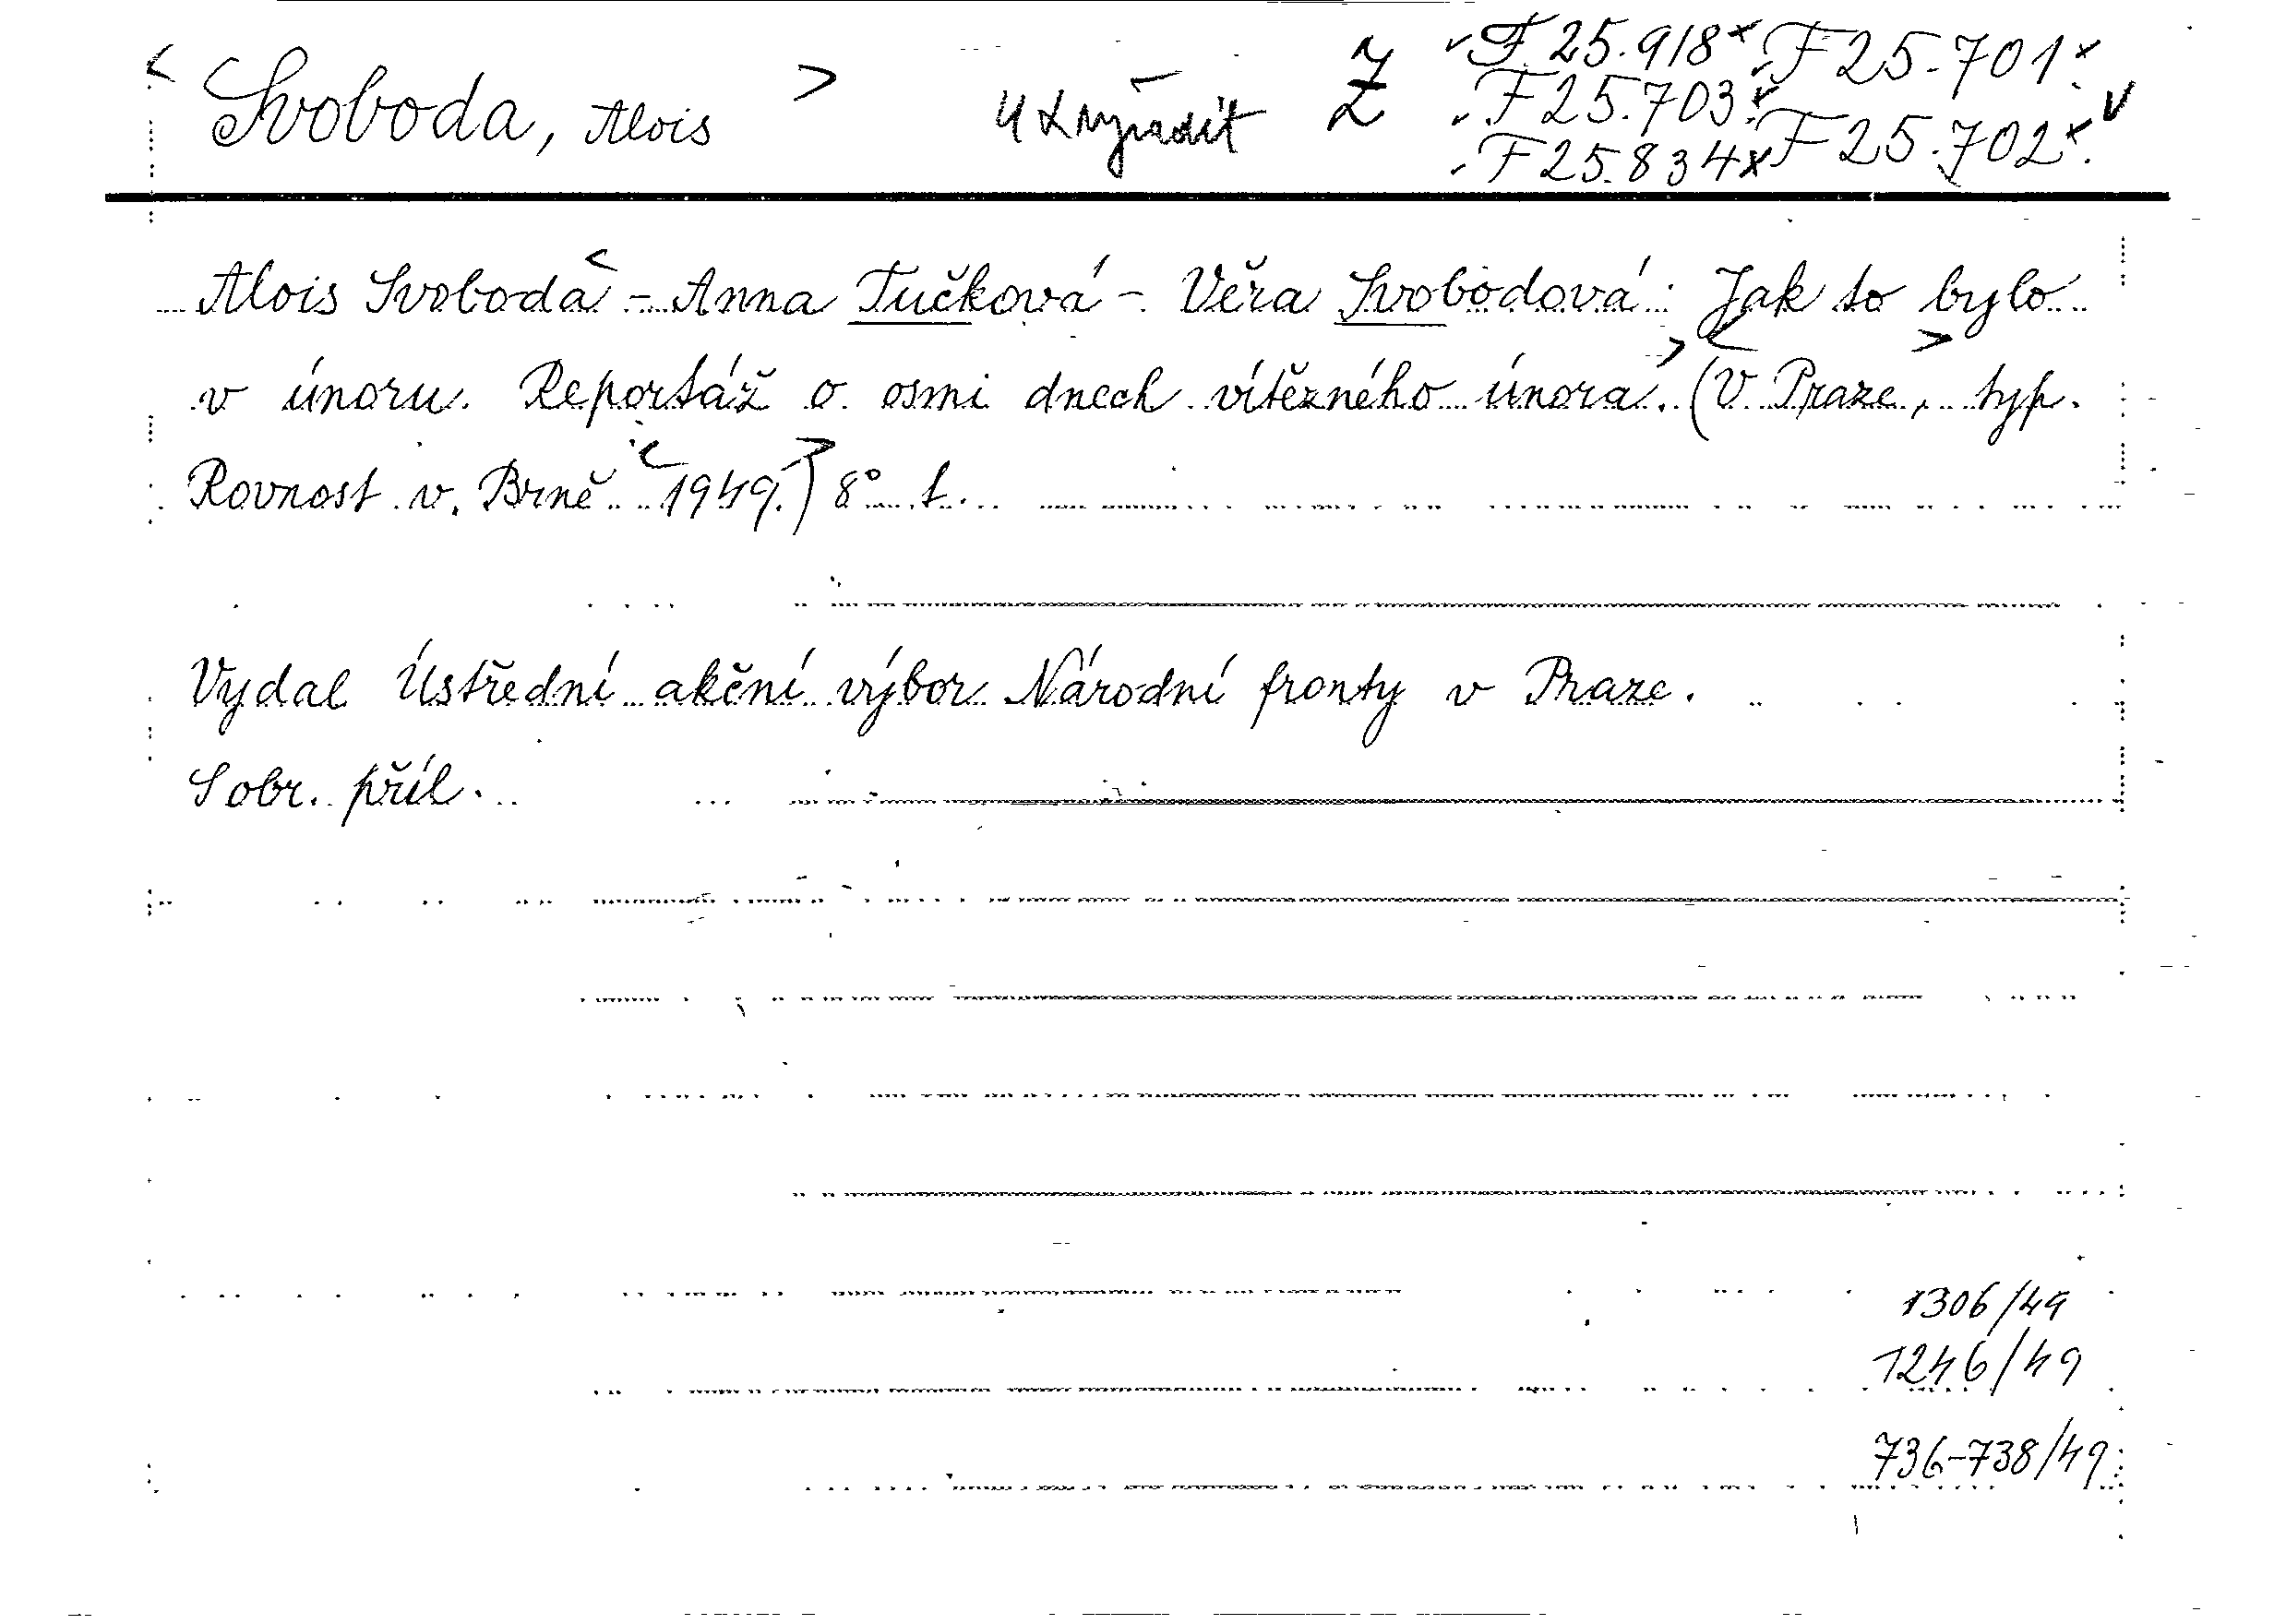 < Svoboda, Alois > 4x vyřadit Ž
F 25.918 x F 25.701 x
F 25.703 F 25.702 x
F 25.834 x
Alois Svoboda - Anna Tučková - Věra Svobodová: Jak to bylo
v únoru. Reportáž o osmi dnech vítězného února. (V Praze, typ.
Rovnost v Brně 1949.) 8° s.
Vydal Ústřední akční výbor Národní fronty v Praze.
S obr. příl.
1306/49
1246/49
736-738/49